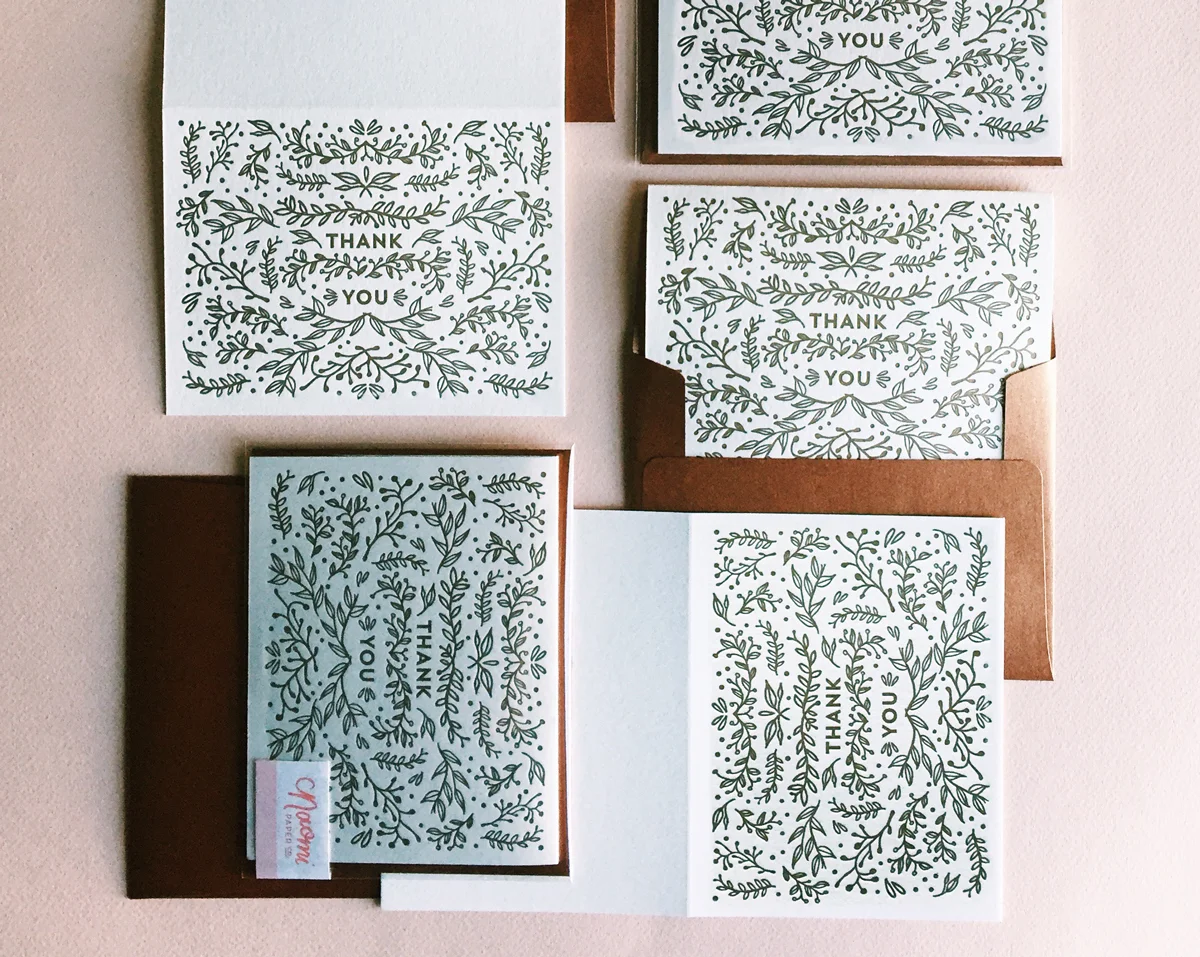 YOU
THANK
YOU
THANK
YOU
THANK
YOU
THANK
YOU
Naomi
PAPER CO